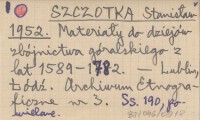 SZCZOTKA Stanisław
1952. Materiały do dziejów
zbójnictwa góralskiego z
lat 1589-1782. — Lublin,
Łódź. Archiwum Etnogra-
ficzne nr 3. Ss. 190, po-
wielane.